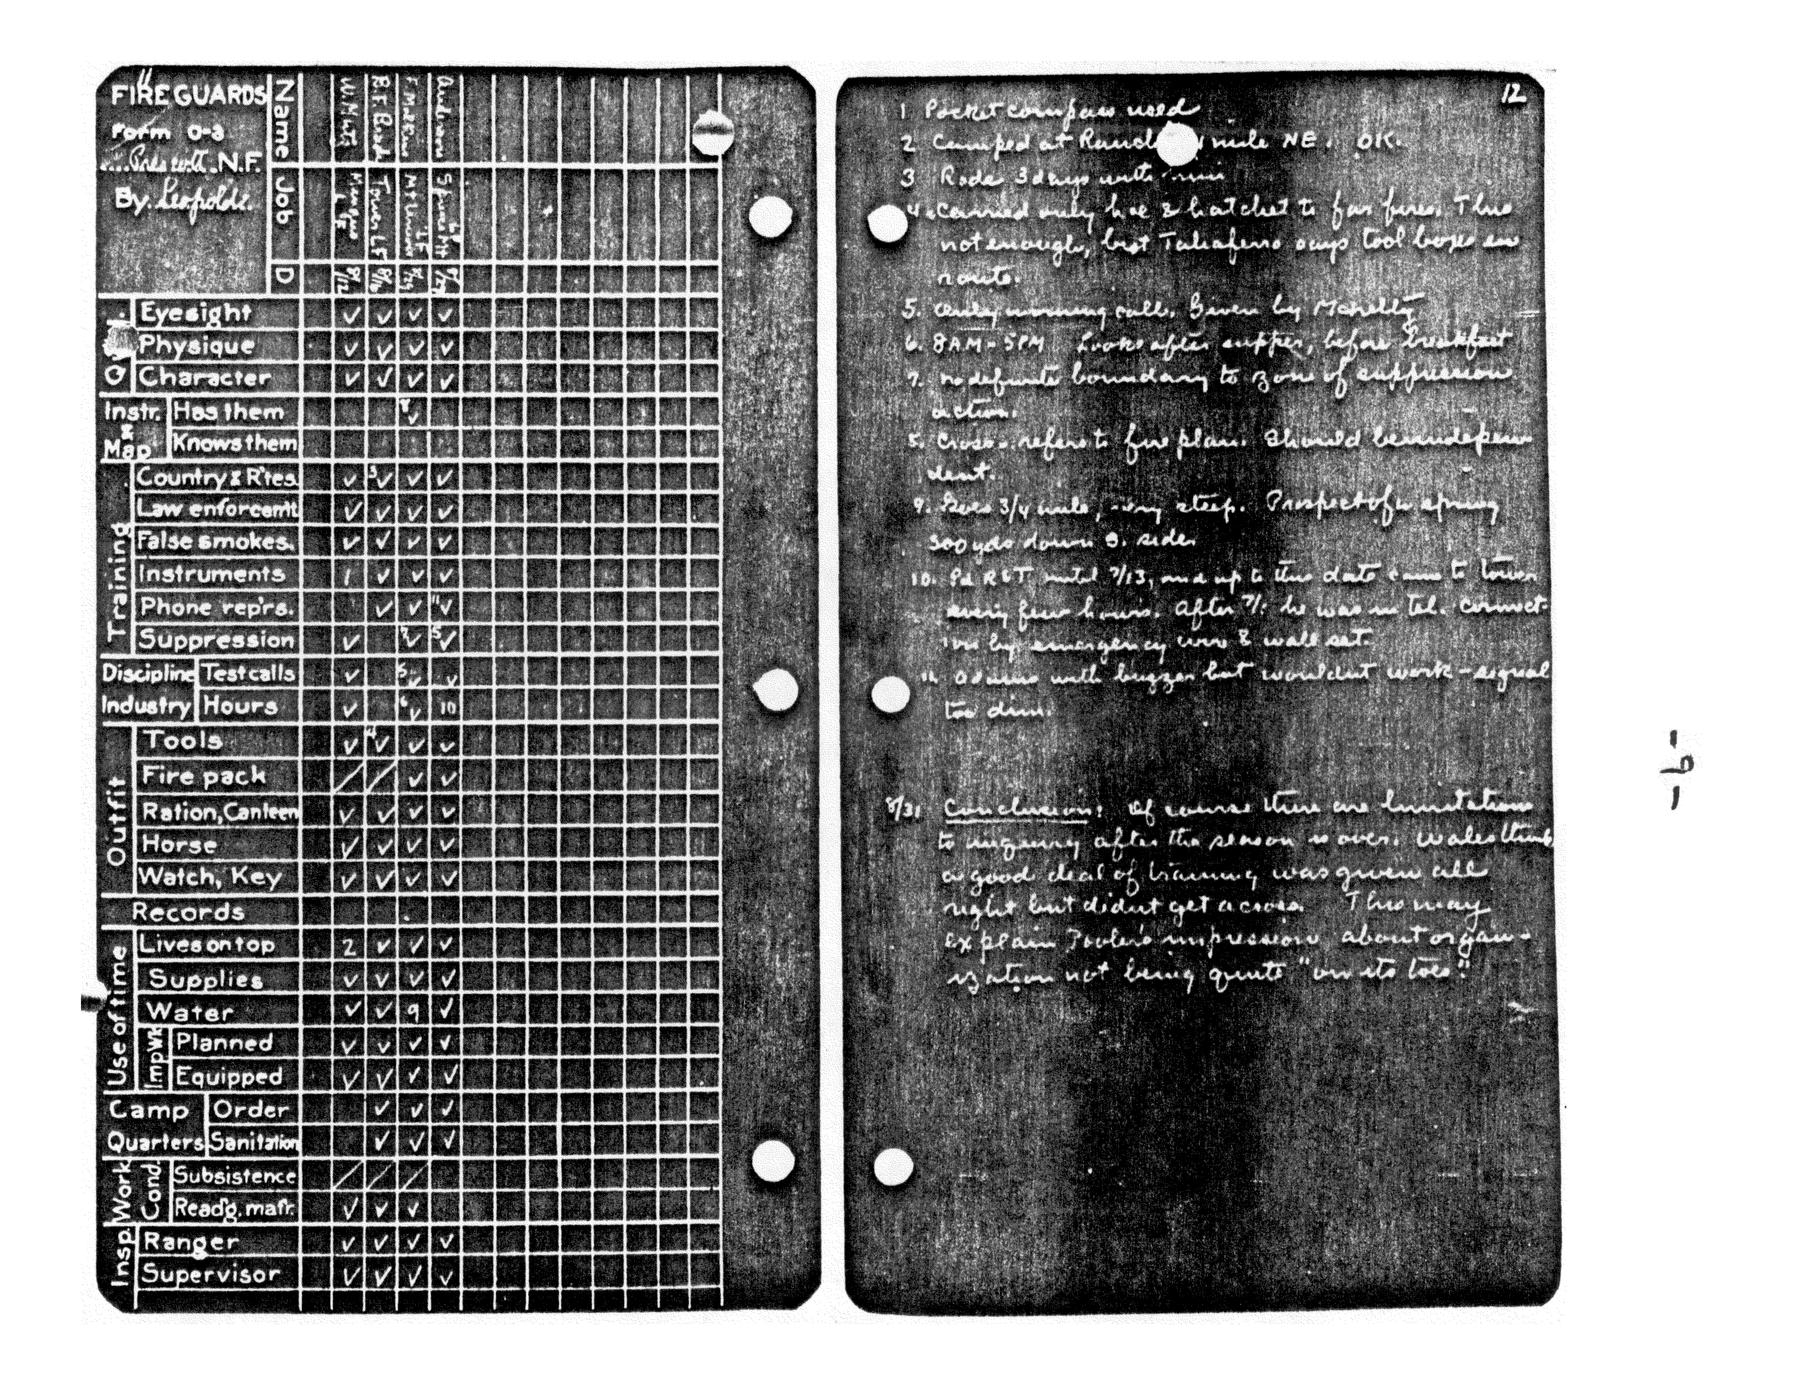 11
FIRE GUARDS
Form O-3
Prescott N.F.
By Leopold.
Name
Job
D
8/12
Eyesight ✓ ✓ ✓ ✓
Physique ✓ ✓ ✓ ✓
Character ✓ ✓ ✓ ✓
Instr. & Map
Has them
Knows them
Training
Country & R'tes ✓ 3✓ ✓ ✓
Law enforcem't ✓ ✓ ✓ ✓
False smokes. ✓ ✓ ✓ ✓
Instruments 1 ✓ ✓ ✓
Phone rep'rs. ✓ ✓ 11✓
Suppression ✓
Discipline Test calls ✓ 5✓ ✓
Industry Hours ✓ 6✓ 10
Outfit
Tools ✓ 4✓ ✓ ✓
Fire pack / / ✓ ✓
Ration, Canteen ✓ ✓ ✓ ✓
Horse ✓ ✓ ✓ ✓
Watch, Key ✓ ✓ ✓ ✓
Records
Use of time
Lives on top 2 ✓ ✓ ✓
Supplies ✓ ✓ ✓ ✓
Water ✓ ✓ 9 ✓
Imp Wk
Planned ✓ ✓ ✓ ✓
Equipped ✓ ✓ ✓ ✓
Camp Quarters
Order ✓ ✓ ✓
Sanitation ✓ ✓ ✓
Work Cond.
Subsistence / / /
Read'g. mat'r. ✓ ✓ ✓
Insp.
Ranger ✓ ✓ ✓ ✓
Supervisor ✓ ✓ ✓ ✓
12
1 Pocket compass used
2 Camped at mile NE. OK.
3 Rode 3 days with
4. Carried only hoe & hatchet to far fires. This
not enough, but Taliaferro says tool boxes en
route.
5. Early morning call. Given by
6. 8AM - 5PM Looks after supper, before breakfast
7. No definite boundary to zone of suppression
action.
Cross-refers to fire plan. Should be indepen-
dent.
9. Goes 3/4 mile, very steep. Prospect of a spring
300 yds down S. side.
10. Pd R&T until 7/13, and up to this date came to tower
every few hours. After he was in tel. connect-
ion by emergency wire & wall set.
11. with buzzer but wouldnt work - signal
too dim.
8/31 Conclusion: Of course there are limitations
to inquiry after the season is over. Wales thinks
a good deal of training was given all
right but didnt get across. This may
explain Pooler's impression about organ-
ization not being quite "on its toes".